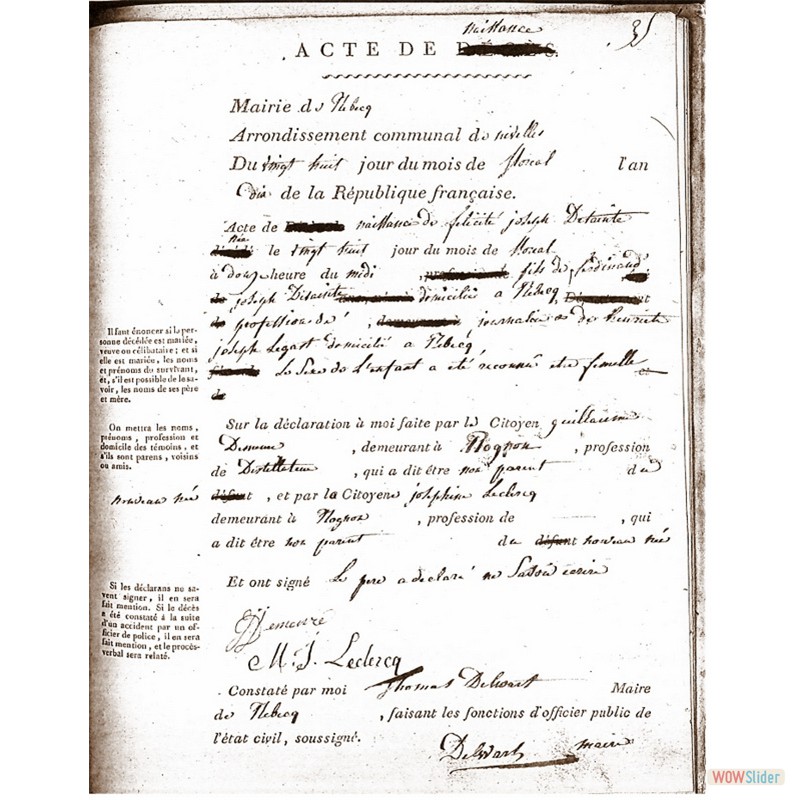 naissance
35
ACTE DE DÉCÈS.
Mairie de Rebecq
Arrondissement communal de nivelles
Du vingt huit jour du mois de floreal l'an
dix de la République française.
Acte de naissance de felicité joseph Detainte
née
le vingt huit jour du mois de floreal
à douze heure du midi fils de ferdinand
joseph Detainte domicilié a Rebecq
profession de journalier & de henriette
joseph Legast domicilié a Rebecq
Le Sexe de L'enfant a été reconnu etre femelle
de
Il faut énoncer si la per-
sonne décédée est mariée,
veuve ou célibataire; et si
elle est mariée, les noms
et prénoms du survivant,
et, s'il est possible de le sa-
voir, les noms de ses père
et mère.
Sur la déclaration à moi faite par le Citoyen guillaume
Demeure, demeurant à Rognon, profession
de Distillateur, qui a dit être non parent du
nouveau né défunt, et par la Citoyene josephine Leclercq
demeurant à Rognon, profession de , qui
a dit être non parent du défunt nouveau né
On mettra les noms,
prénoms, profession et
domicile des témoins, et
s'ils sont parens, voisins
ou amis.
Et ont signé Le pere a declaré ne Savoir ecrire
Si les déclarans ne sa-
vent signer, il en sera
fait mention. Si le décès
a été constaté à la suite
d'un accident par un of-
ficier de police, il en sera
fait mention, et le procès-
verbal sera relaté.
Demeure
M. J. Leclercq
Constaté par moi Thomas Delwart Maire
de Rebecq, faisant les fonctions d'officier public de
l'état civil, soussigné.
Delwart maire
WOWSlider